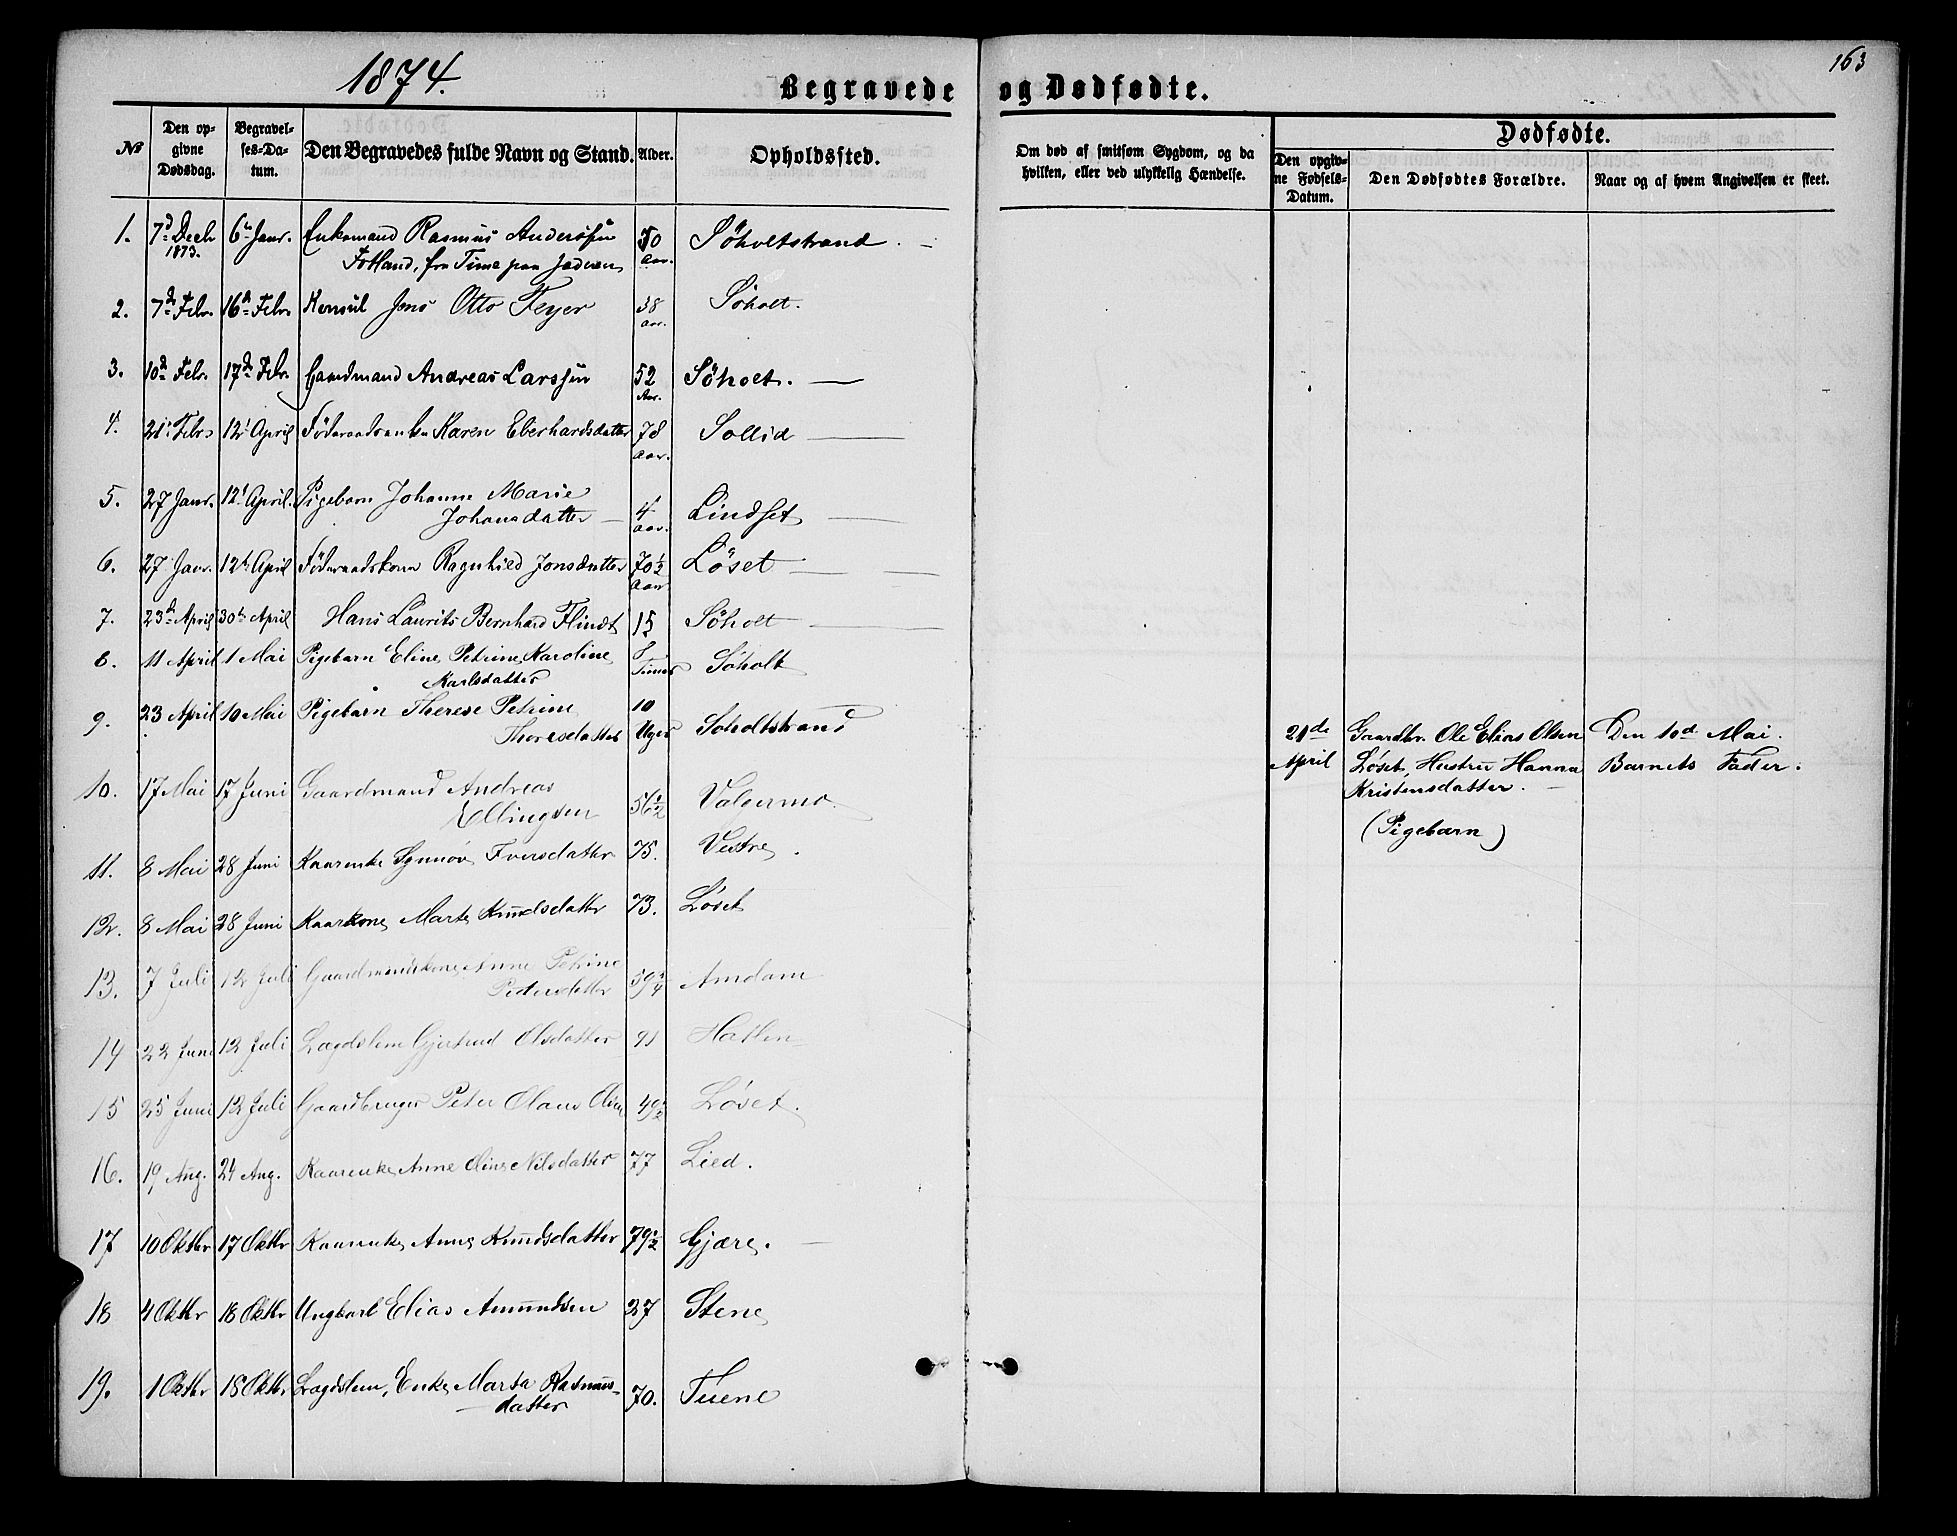 163
1874.
Begravede og Dødfødte.
No
Den op-
givne
Dødsdag.
Begravel-
ses-Da-
tum.
Den Begravedes fulde Navn og Stand.
Alder.
Opholdssted.
Om død af smitsom Sygdom, og da
hvilken, eller ved ulykkelig Hændelse.
Dødfødte.
Den opgiv-
ne Fødsels-
Datum.
Den Dødfødtes Forældre.
Naar og af hvem Angivelsen er skeet.
1. 7d Decb 6te Janr. Enkemand Rasmus Anderssen 50 Søholtstrand. —
1873. Fotland, fra Time paa Jæderen Aar.
2. 7de Febr. 16de Febr. Konsul Jens Otto Feyer 38 Søholt.
Aar.
3. 10de Febr. 17de Febr. Gaardmand Andreas Larssen 52 Søholt. —
Aar.
4. 21 Febr 12 April Føderaadsenke Karen Eberhardsdatter 78 Sollid —
Aar.
5. 27 Janr. 12 April. Pigebarn Johanne Marie 4 Lindset —
Johansdatter — Aar.
6. 27 Janr. 12te April Føderaadskone Ragnhild Jonsdatter 70½ Løset —
Aar
7. 23de April 30te April Hans Laurits Bernhard Flindt 15 Søholt —
8. 11 April 1 Mai Pigebarn Eline Petrine Karoline 8 Søholt
Karlsdatter Timer
9. 23 April 10 Mai Pigebarn Therese Petrine 10 Soholtstrand
Thoresdatter Uger
21de April
Gaardbr. Ole Elias Olsen
Løset, Hustru Hanna
Kristensdatter. —
(Pigebarn)
Den 10d Mai.
Barnets Fader.
10. 17 Mai 17 Juni Gaardmand Andreas 56½ Valgermo.
Ellingsen
11. 8 Mai 28 Juni Kaarenke Synnøv Iversdatter 75. Vestre.
12. 8 Mai 28 Juni Kaarkone Marte Knudsdatter 73. Løset
13. 7 Juli 12 Juli Gaardmandskone Anne Petrine 59¾ Amdam
Pedersdatter
14 22 Juni 12 Juli Lægdslem Gjertrud Olsdatter 91 Hatlen
15 25 Juni 12 Juli Gaardbruger Peter Olaus Olsen 49½ Løset.
16. 19 Aug. 24 Aug. Kaarenke Anne Oline Nilsdatter 77 Lied.
17 10 Oktbr 17 Oktbr Kaarenke Anne Knudsdatter 79½ Gjære. —
18 4 Oktbr 18 Oktbr Ungkarl Elias Amundsen 27 Stene
19. 1 Oktbr 18 Oktbr Lægdslem, Enke Marta Rasmus- 70. Tuene
datter